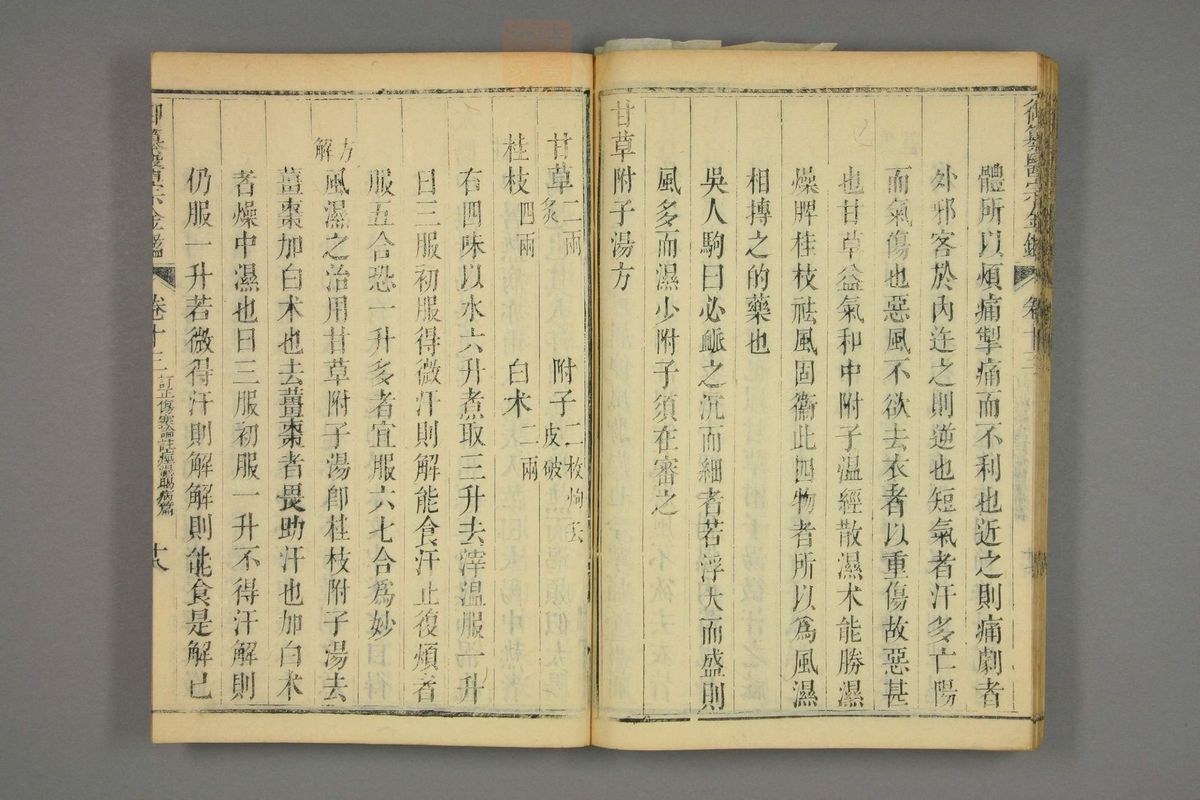 體所以煩痛掣痛而不利也近之則痛劇者
外邪客於內迕之則逆也短氣者汗多亡陽
而氣傷也惡風不欲去衣者以重傷故惡甚
也甘草益氣和中附子温經散濕术能勝濕
燥脾桂枝祛風固衞此四物者所以爲風濕
相搏之的藥也
吳人駒曰必䘑之沉而細者若浮大而盛則
風多而濕少附子須在審之
甘草附子湯方
甘草二兩炙 附子二枚炮去皮破
桂枝四兩 白术二兩
右四味以水六升煮取三升去滓温服一升
日三服初服得微汗則解能食汗止復煩者
服五合恐一升多者宜服六七合爲妙
方解
風濕之治用甘草附子湯卽桂枝附子湯去
薑棗加白术也去薑棗者畏助汗也加白术
者燥中濕也日三服初服一升不得汗解則
仍服一升若微得汗則解解則能食是解已
御纂醫宗金鑑 卷十三 訂正傷寒論註痙濕暍病篇 十八